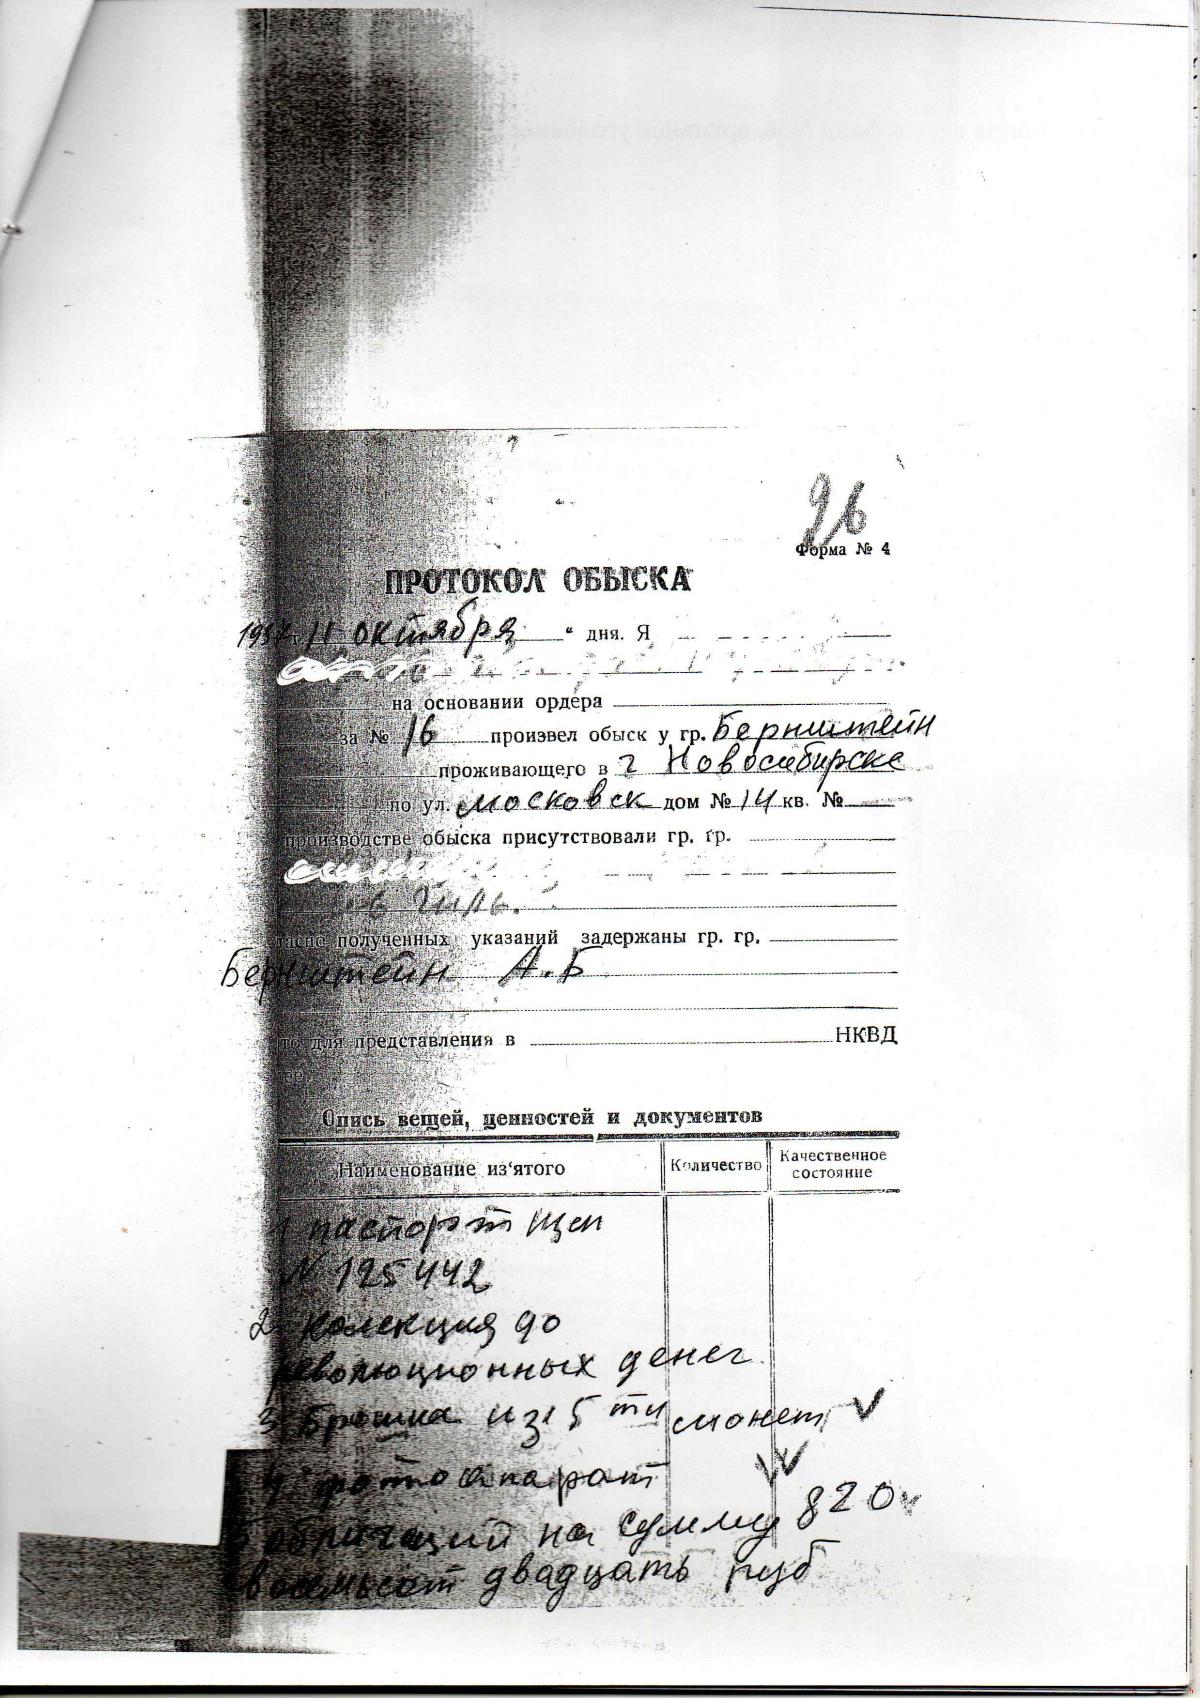 26
Форма № 4
ПРОТОКОЛ ОБЫСКА
1937 г 11 октября " дня. Я
на основании ордера
за № 16 произвел обыск у гр. Бернштейн
проживающего в г Новосибирске
по ул. московск дом № 14 кв. №
производстве обыска присутствовали гр. гр.
гласно полученных указаний задержаны гр. гр.
Бернштейн А.Б
то для представления в НКВД
ее
Опись вещей, ценностей и документов
Наименование из'ятого Количество Качественное состояние
1 паспорт
№ 125442
2 колекция до
революционных денег
3 Брошка из 5 ти монет
4 фотоапарат
5 облигаций на сумму 820
восемьсот двадцать руб